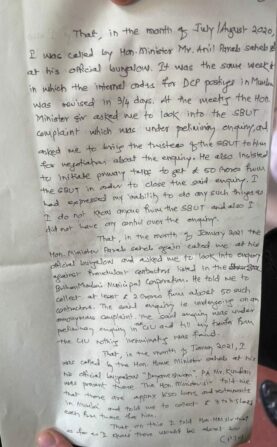 That, in the month of July/August 2020,
I was called by Hon. Minister Mr. Anil Parab saheb
at his official bungalow. It was the same week
in which the internal orders for DCP postings in Mumbai
was revised in 3/4 days. At the meeting the Hon.
Minister Sir asked me to look into the SBUT
complaint which was under preliminary enquiry, and
asked me to bring the trustees of the SBUT to him
for negotiation about the enquiry. He also insisted
to initiate primary talks to get ₹ 50 crores from
the SBUT in order to close the said enquiry. I
had expressed my inability to do any such things as
I do not know anyone from the SBUT and also I
did not have any control over the enquiry.
That, in the month of January 2021 the
Hon. Minister Parab saheb again called me at his
official bungalow and asked me to look into enquiry
against fraudulent contractors listed in the
Brihan Mumbai Municipal Corporation. He told me to
collect at least ₹ 2 crore from about 50 such
contractors. The said enquiry is undergoing on an
anonymous complaint. The said enquiry was under
preliminary enquiry in CIU and till my transfer from
the CIU nothing incriminating was found.
That, in the month of January 2021, I
was called by the Hon. Home Minister saheb at his
his official bungalow "Dnyaneshwari". PA Mr. Kundan
was present there. The Hon. Minister sir told me
that there are approx 1650 bars, and restaurants
in Mumbai and told me to collect ₹ 3 to 3.5 lakhs
each from those for him.
That on this I told Hon. HM sir that
as far as I know there would be about 200